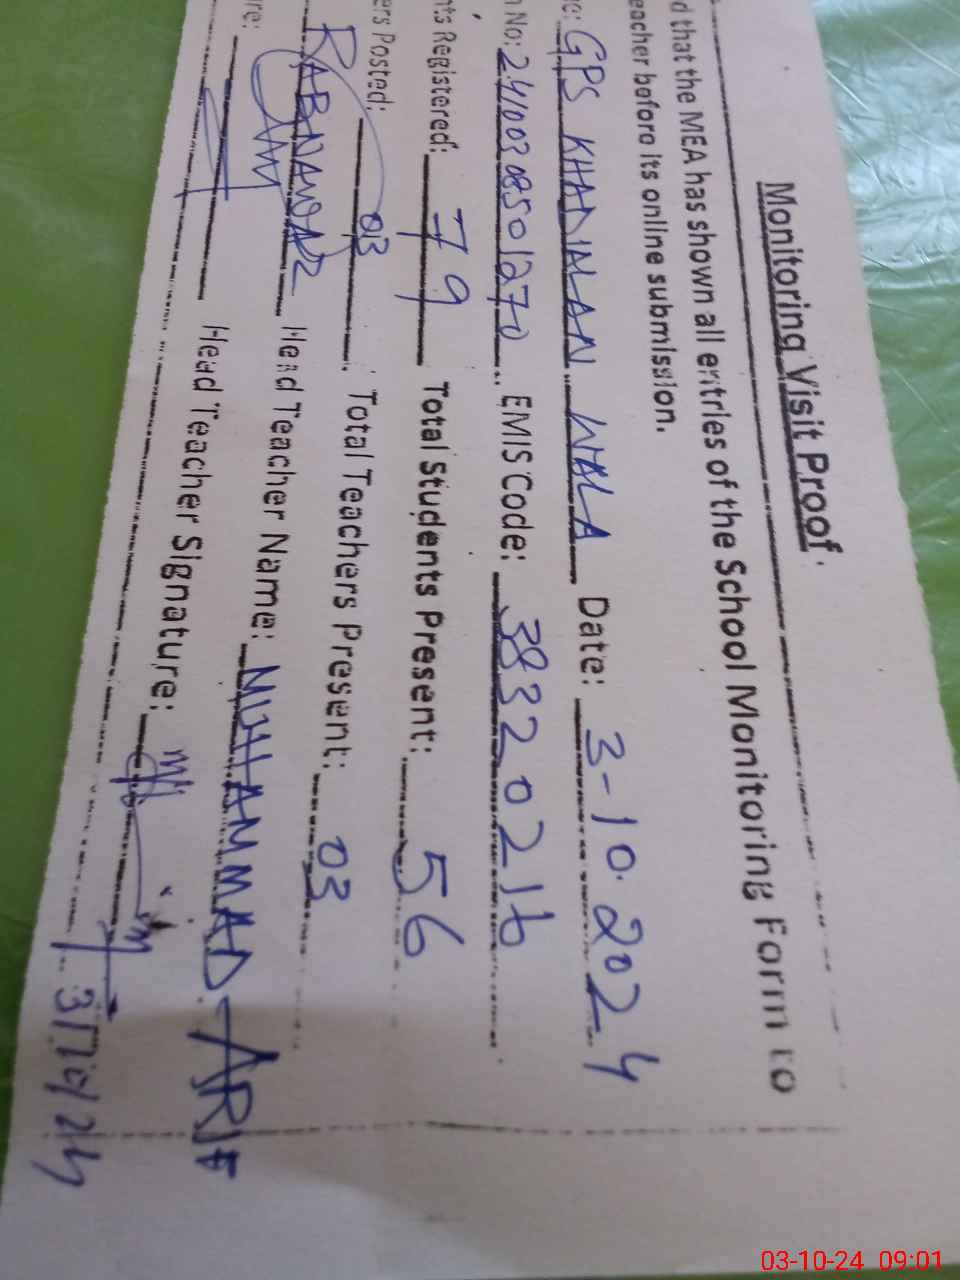 Monitoring Visit Proof
d that the MEA has shown all entries of the School Monitoring Form to
eacher before its online submission.
e: GPS KHANANAN WALA Date: 3-10.2024
n No: 2410030850 1270 EMIS Code: 38320216
nts Registered: 79 Total Students Present: 56
ers Posted: 03 Total Teachers Present: 03
RABNAWAZ Head Teacher Name: MUHAMMAD ARIF
re: Head Teacher Signature:
03-10-24 09:01